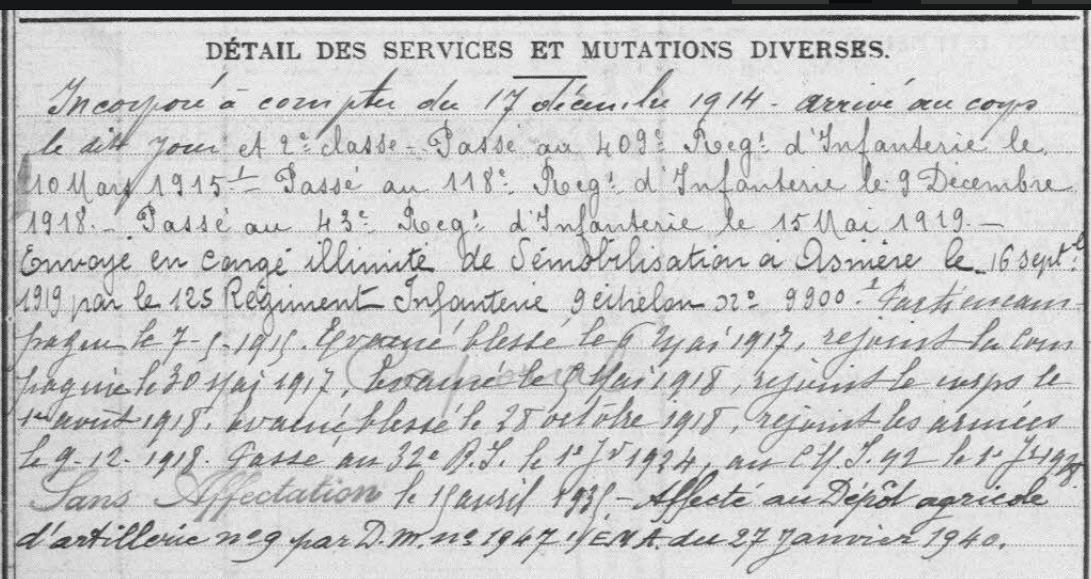 DÉTAIL DES SERVICES ET MUTATIONS DIVERSES.
Incorporé à compter du 17 décembre 1914 - arrivé au corps
le dit jour et 2e classe - Passé au 409e Regt d'Infanterie le
10 Mars 1915 - Passé au 118e Regt d'Infanterie le 9 Décembre
1918. - Passé au 43e Regt d'Infanterie le 15 Mai 1919. -
Envoyé en congé illimité de démobilisation à Asnière le 16 septbre
1919 par le 125 Régiment Infanterie 9 échelon No 9900. Parti en cam
pagne le 7-5-1915. Evacué blessé le 6 Mai 1917, rejoint la com
pagnie le 30 Mai 1917, évacué le Mai 1918, rejoint le corps le
1er août 1918, évacué blessé le 28 octobre 1918, rejoint les armées
le 9-12-1918. Passé au 32e R.I. le 1er Jr 1924, au C.M.I. 92 le 1er
Sans Affectation le 15 avril 1935. - Affecté au Dépôt agricole
d'artillerie no 9 par D.M. no 1947 du 27 Janvier 1940.